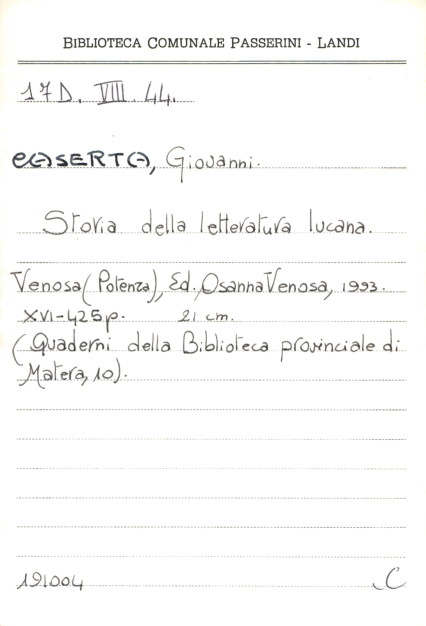 BIBLIOTECA COMUNALE PASSERINI - LANDI
17D. VIII. 44.
CASERTA, Giovanni.
Storia della letteratura lucana.
Venosa (Potenza), Ed. Osanna Venosa, 1993.
XVI-425p. 21 cm.
(Quaderni della Biblioteca provinciale di
Matera, 10).
191004 C